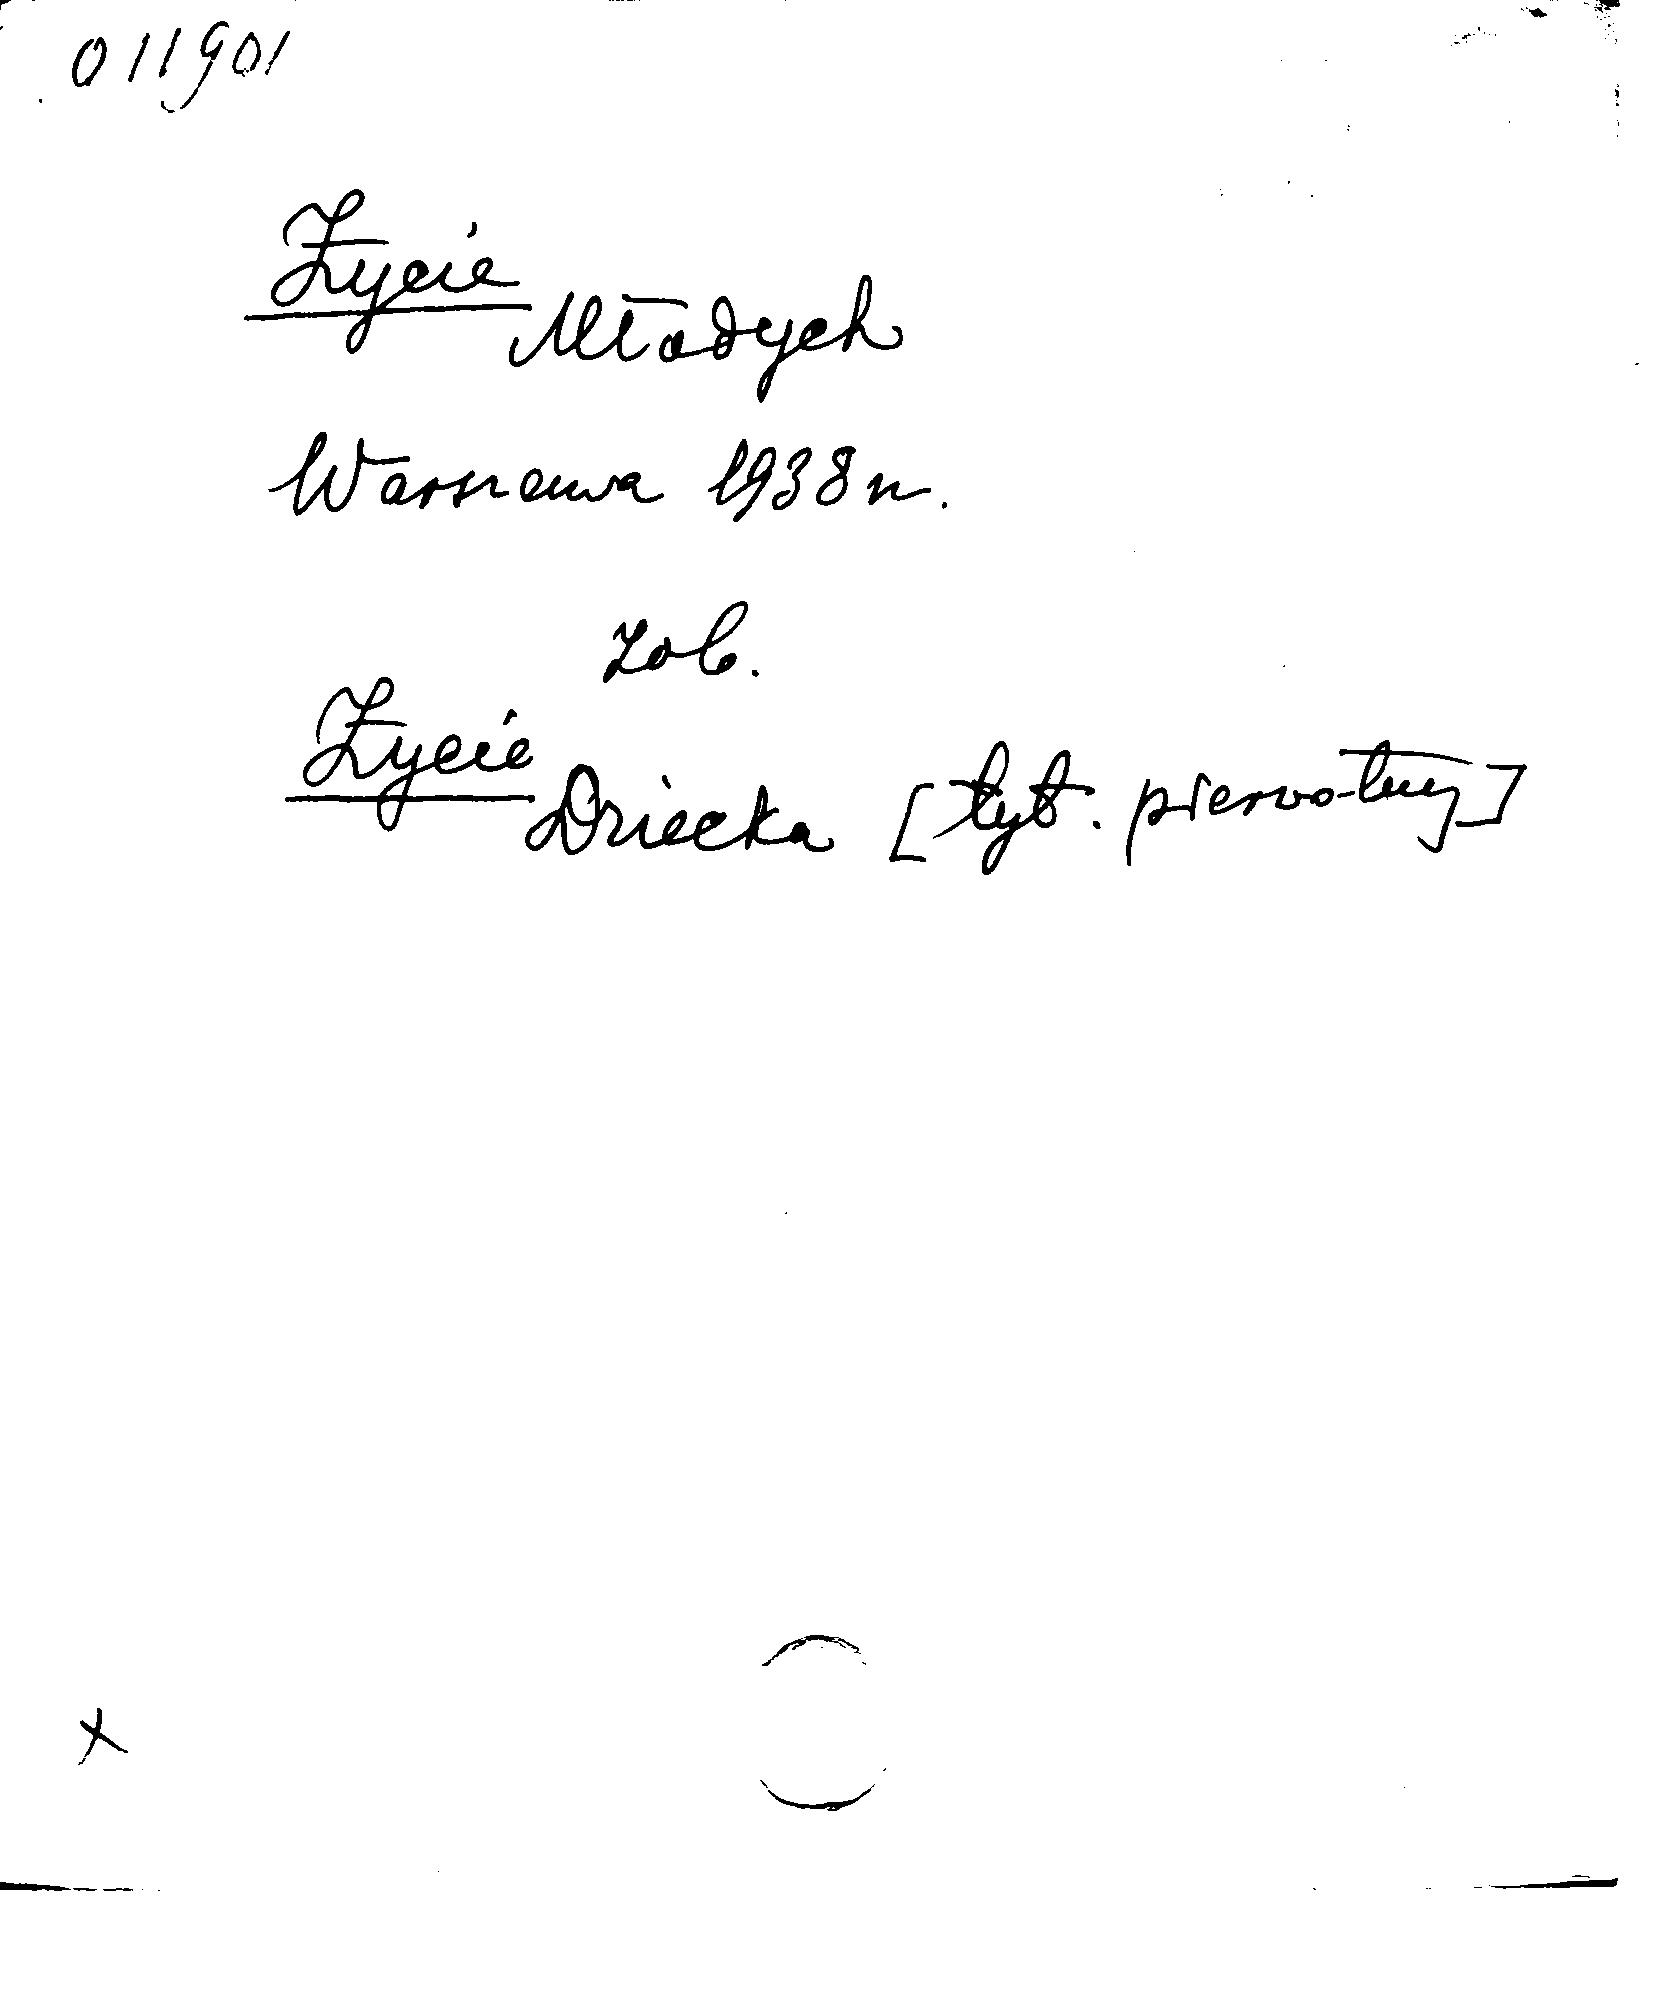 011901
Życie
Młodych
Warszawa 1938 r.
zob.
Życie
Dziecka [tyt. pierwotny]
x